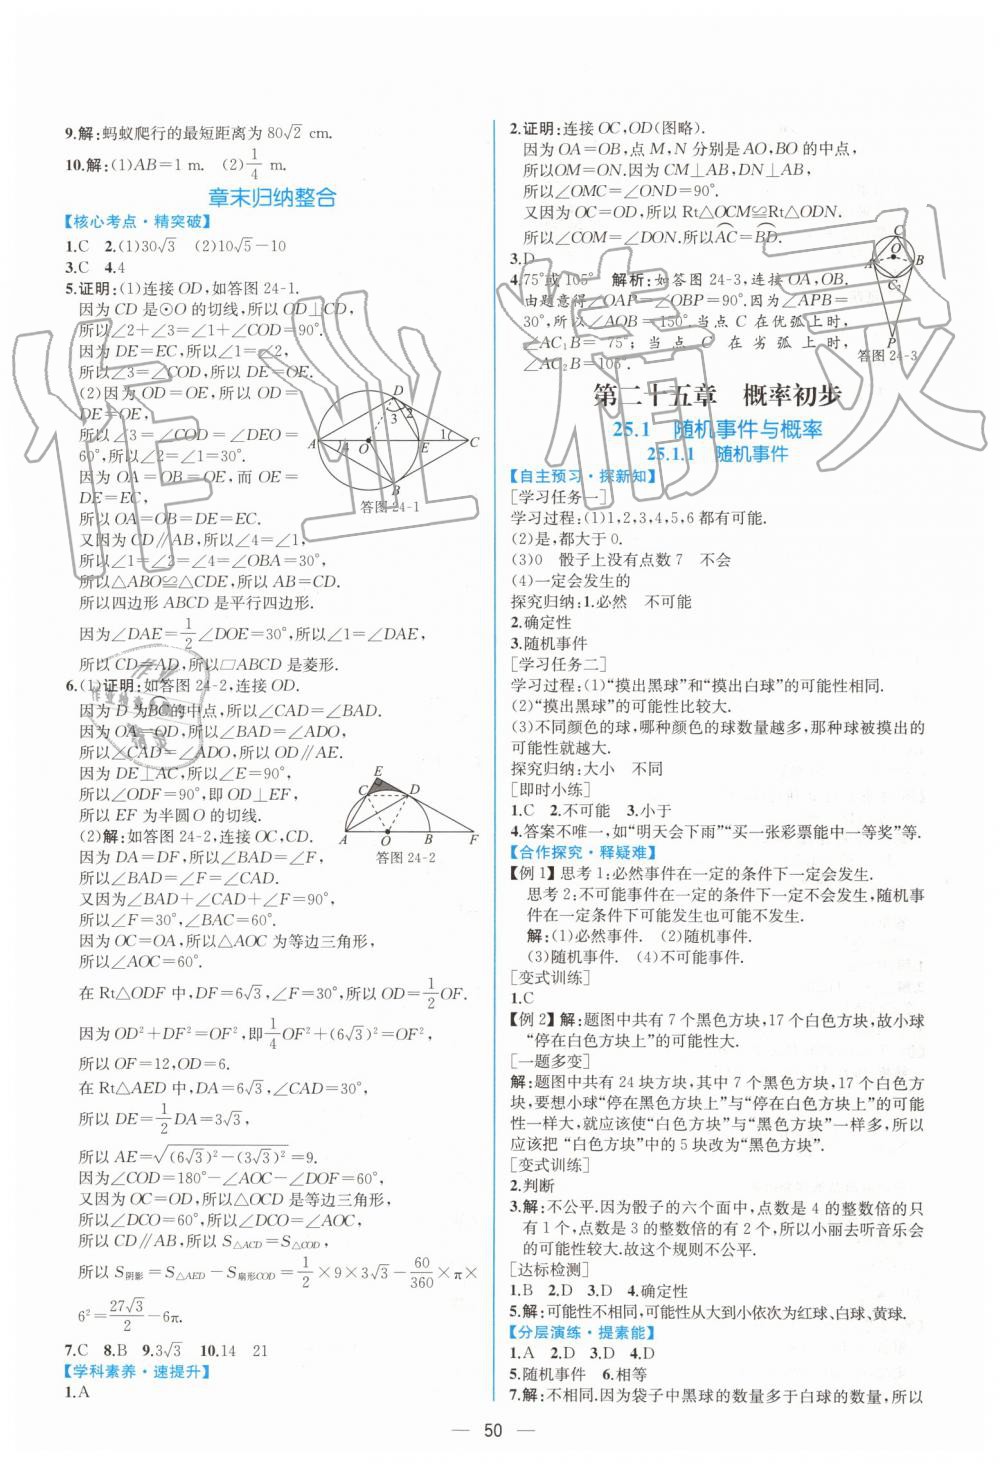 9.解:蚂蚁爬行的最短距离为 80√2 cm.
10.解:(1)AB=1 m. (2)1/4 m.
章末归纳整合
【核心考点·精突破】
1.C 2.(1)30√3 (2)10√5-10
3.C 4.4
5.证明:(1)连接 OD,如答图 24-1.
因为 CD 是⊙O 的切线,所以 OD⊥CD,
所以∠2+∠3=∠1+∠COD=90°.
因为 DE=EC,所以∠1=∠2,
所以∠3=∠COD,所以 DE=OE.
(2)因为 OD=OE,所以 OD=
DE=OE,
所以∠3=∠COD=∠DEO=
60°,所以∠2=∠1=30°.
因为 OA=OB=OE,而 OE=
DE=EC,
所以 OA=OB=DE=EC.
又因为 CD∥AB,所以∠4=∠1,
所以∠1=∠2=∠4=∠OBA=30°,
所以△ABO≌△CDE,所以 AB=CD.
所以四边形 ABCD 是平行四边形.
因为∠DAE=1/2∠DOE=30°,所以∠1=∠DAE,
所以 CD=AD,所以▱ABCD 是菱形.
A
D
3
2
4
O
E
1
C
B
答图 24-1
6.(1)证明:如答图 24-2,连接 OD.
因为 D 为BC的中点,所以∠CAD=∠BAD.
因为 OA=OD,所以∠BAD=∠ADO,
所以∠CAD=∠ADO,所以 OD∥AE.
因为 DE⊥AC,所以∠E=90°,
所以∠ODF=90°,即 OD⊥EF,
所以 EF 为半圆 O 的切线.
(2)解:如答图 24-2,连接 OC,CD.
因为 DA=DF,所以∠BAD=∠F,
所以∠BAD=∠F=∠CAD.
又因为∠BAD+∠CAD+∠F=90°,
所以∠F=30°,∠BAC=60°.
因为 OC=OA,所以△AOC 为等边三角形,
所以∠AOC=60°.
E
C
D
A
O
B
F
答图 24-2
在 Rt△ODF 中,DF=6√3,∠F=30°,所以 OD=1/2OF.
因为 OD²+DF²=OF²,即1/4OF²+(6√3)²=OF²,
所以 OF=12,OD=6.
在 Rt△AED 中,DA=6√3,∠CAD=30°,
所以 DE=1/2DA=3√3,
所以 AE=√((6√3)²-(3√3)²)=9.
因为∠COD=180°-∠AOC-∠DOF=60°,
又因为 OC=OD,所以△OCD 是等边三角形,
所以∠DCO=60°,所以∠DCO=∠AOC,
所以 CD∥AB,所以 S△ACD=S△COD,
所以 S阴影=S△AED-S扇形COD=1/2×9×3√3-60/360×π×
6²=27√3/2-6π.
7.C 8.B 9.3√3 10.14 21
【学科素养·速提升】
1.A
2.证明:连接 OC,OD(图略).
因为 OA=OB,点 M,N 分别是 AO,BO 的中点,
所以 OM=ON. 因为 CM⊥AB, DN⊥AB,
所以∠OMC=∠OND=90°.
又因为 OC=OD,所以 Rt△OCM≌Rt△ODN.
所以∠COM=∠DON.所以AC=BD.
3.D
4.75°或 105° 解析:如答图 24-3,连接 OA,OB.
由题意得∠OAP=∠OBP=90°.因为∠APB=
30°,所以∠AOB=150°.当点 C 在优弧上时,
∠AC₁B=75°;当点 C 在劣弧上时,
∠AC₂B=105°.
C
A
O
B
C₂
P
答图 24-3
第二十五章 概率初步
25.1 随机事件与概率
25.1.1 随机事件
【自主预习·探新知】
[学习任务一]
学习过程:(1)1,2,3,4,5,6 都有可能.
(2)是,都大于 0.
(3)0 骰子上没有点数 7 不会
(4)一定会发生的
探究归纳:1.必然 不可能
2.确定性
3.随机事件
[学习任务二]
学习过程:(1)“摸出黑球”和“摸出白球”的可能性相同.
(2)“摸出黑球”的可能性比较大.
(3)不同颜色的球,哪种颜色的球数量越多,那种球被摸出的
可能性就越大.
探究归纳:大小 不同
[即时小练]
1.C 2.不可能 3.小于
4.答案不唯一,如“明天会下雨”“买一张彩票能中一等奖”等.
【合作探究·释疑难】
【例 1】思考 1:必然事件在一定的条件下一定会发生.
思考 2:不可能事件在一定的条件下一定不会发生,随机事
件在一定条件下可能发生也可能不发生.
解:(1)必然事件. (2)随机事件.
(3)随机事件. (4)不可能事件.
[变式训练]
1.C
【例 2】解:题图中共有 7 个黑色方块,17 个白色方块,故小球
“停在白色方块上”的可能性大.
[一题多变]
解:题图中共有 24 块方块,其中 7 个黑色方块,17 个白色方
块,要想小球“停在黑色方块上”与“停在白色方块上”的可能
性一样大,就应该使“白色方块”与“黑色方块”一样多,所以
应该把 “白色方块”中的 5 块改为“黑色方块”.
[变式训练]
2.判断
3.解:不公平.因为骰子的六个面中,点数是 4 的整数倍的只
有 1 个,点数是 3 的整数倍的有 2 个,所以小丽去听音乐会
的可能性较大.故这个规则不公平.
[达标检测]
1.B 2.D 3.D 4.确定性
5.解:可能性不相同,可能性从大到小依次为红球、白球、黄球.
【分层演练·提素能】
1.A 2.D 3.D 4.D
5.随机事件 6.相等
7.解:不相同.因为袋子中黑球的数量多于白球的数量,所以
50
作业精灵